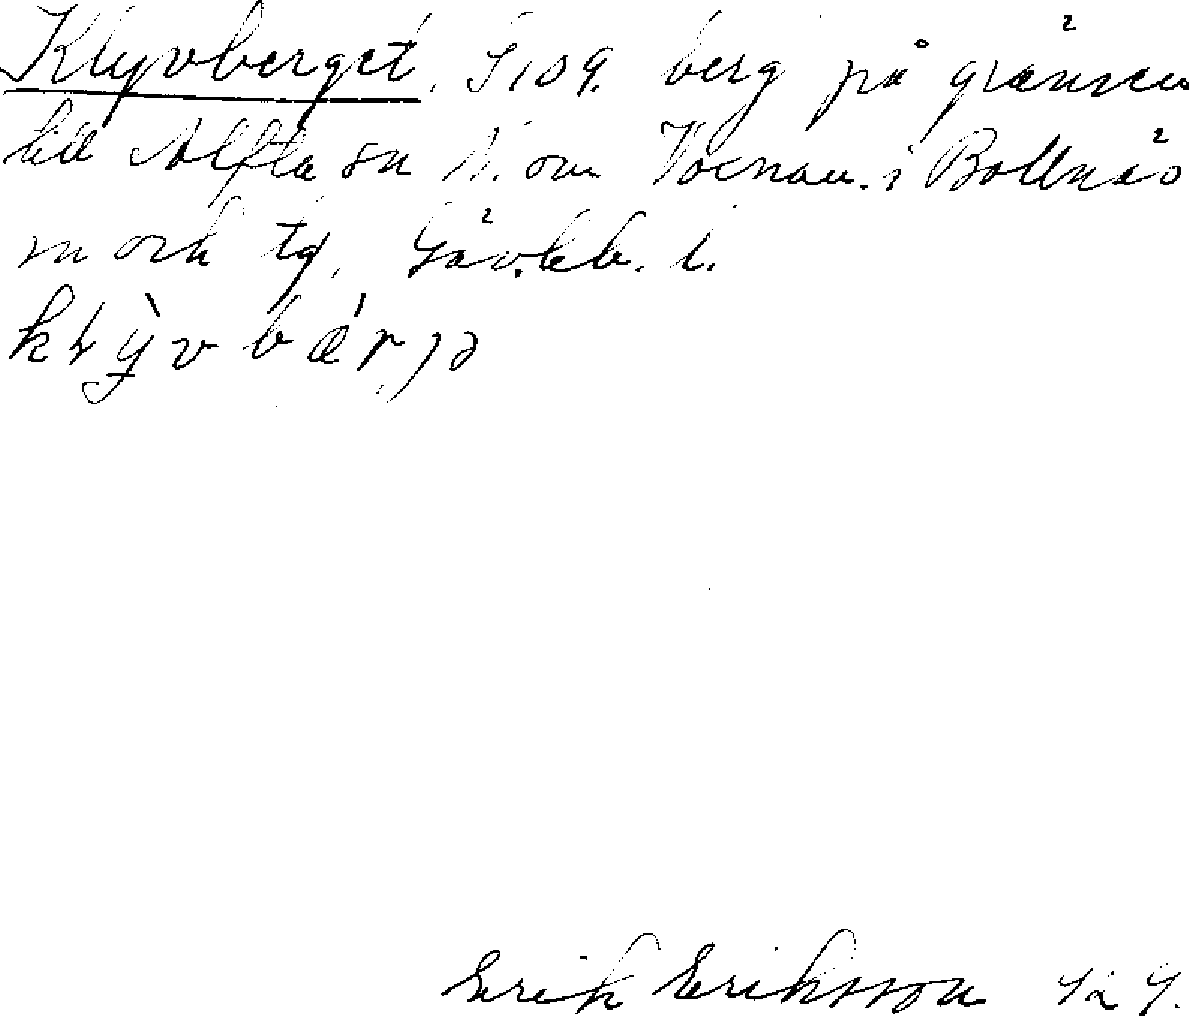 Klyvberget. S 109. berg på gränsen
till Alfta sn N. om Voxnan. i Bollnäs
sn och tg, Gävleb. l.
kḷỳvbǽr,jə
Erik Eriksson 1929.